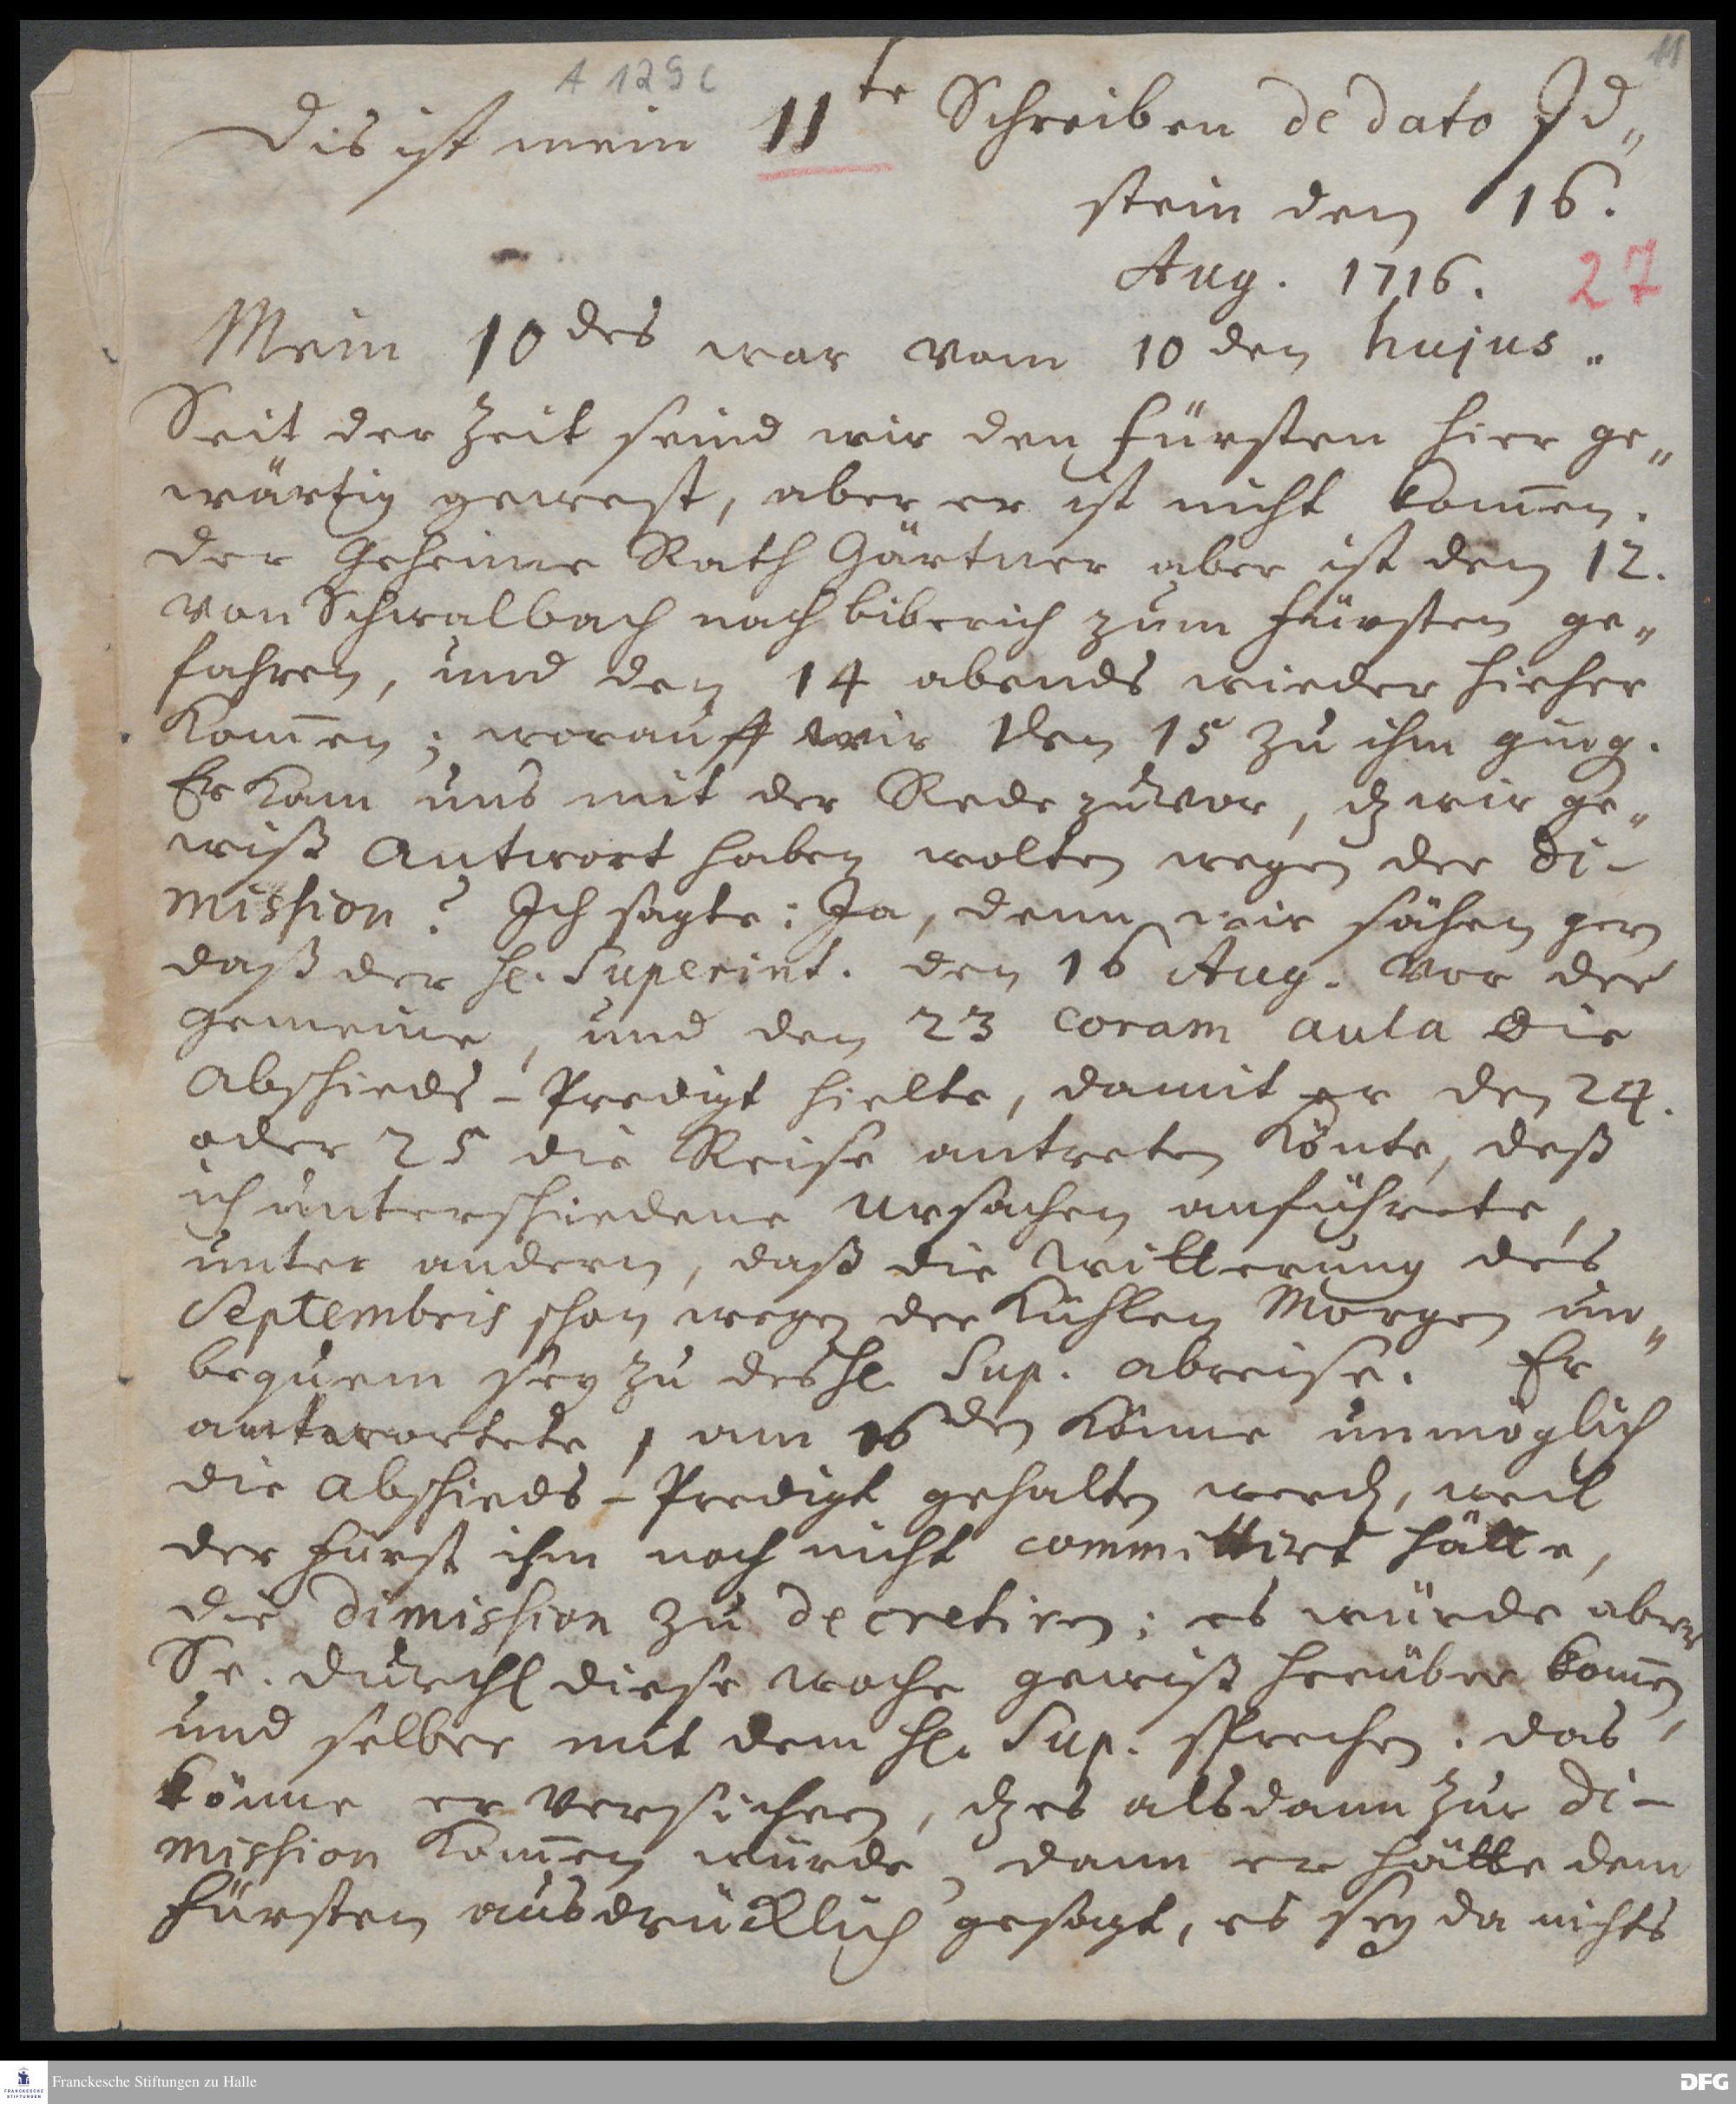 A 129c
11
Dis ist mein 11te Schreiben de dato Id„
stein den 16.
Aug. 1716. 27
Mein 10des war vom 10 den hujus.
Seit der Zeit seind wir den Fürsten hier ge„
wärtig gewest, aber er ist nicht kom̄en.
Der Geheime Rath Gärtner aber ist den 12.
von Schwalbach nach biberich zum Fürsten ge„
fahren, und den 14 abends wieder hieher
kom̄en; worauff wir den 15 zu ihm ging.
Er kam uns mit der Rede zuvor, dz wir ge„
wiß Antwort haben wolten wegen der Di-
mission? Ich sagte: Ja, denn wir sähen gern
daß der H. Superint. den 16 Aug. vor der
Gemeine, und den 23 coram aula die
Abschieds-Predigt hielte, damit er den 24.
oder 25 die Reise antreten könte, deß
ich unterschiedene Ursachen anführete,
unter andern, daß die Witterung des
Septembris schon wegen der kühlen Morgen un„
bequem sey zu des H. Sup. abreise. Er
antwortete, am 16den könne unmöglich
die Abschieds-Predigt gehalten werd, weil
der Fürst ihm noch nicht committirt hätte,
die Dimission zu decretiren; es würde aber
Se. Durchl diese woche gewiß herüber kom̄en,
und selber mit dem H. Sup. sprechen. das
könne er versichern, dz es alsdann zur Di-
mission kom̄en würde, dann er hätte dem
Fürsten ausdrücklich gesagt, es sey da nichts
FRANCKESCHE
STIFTUNGEN
Franckesche Stiftungen zu Halle
DFG